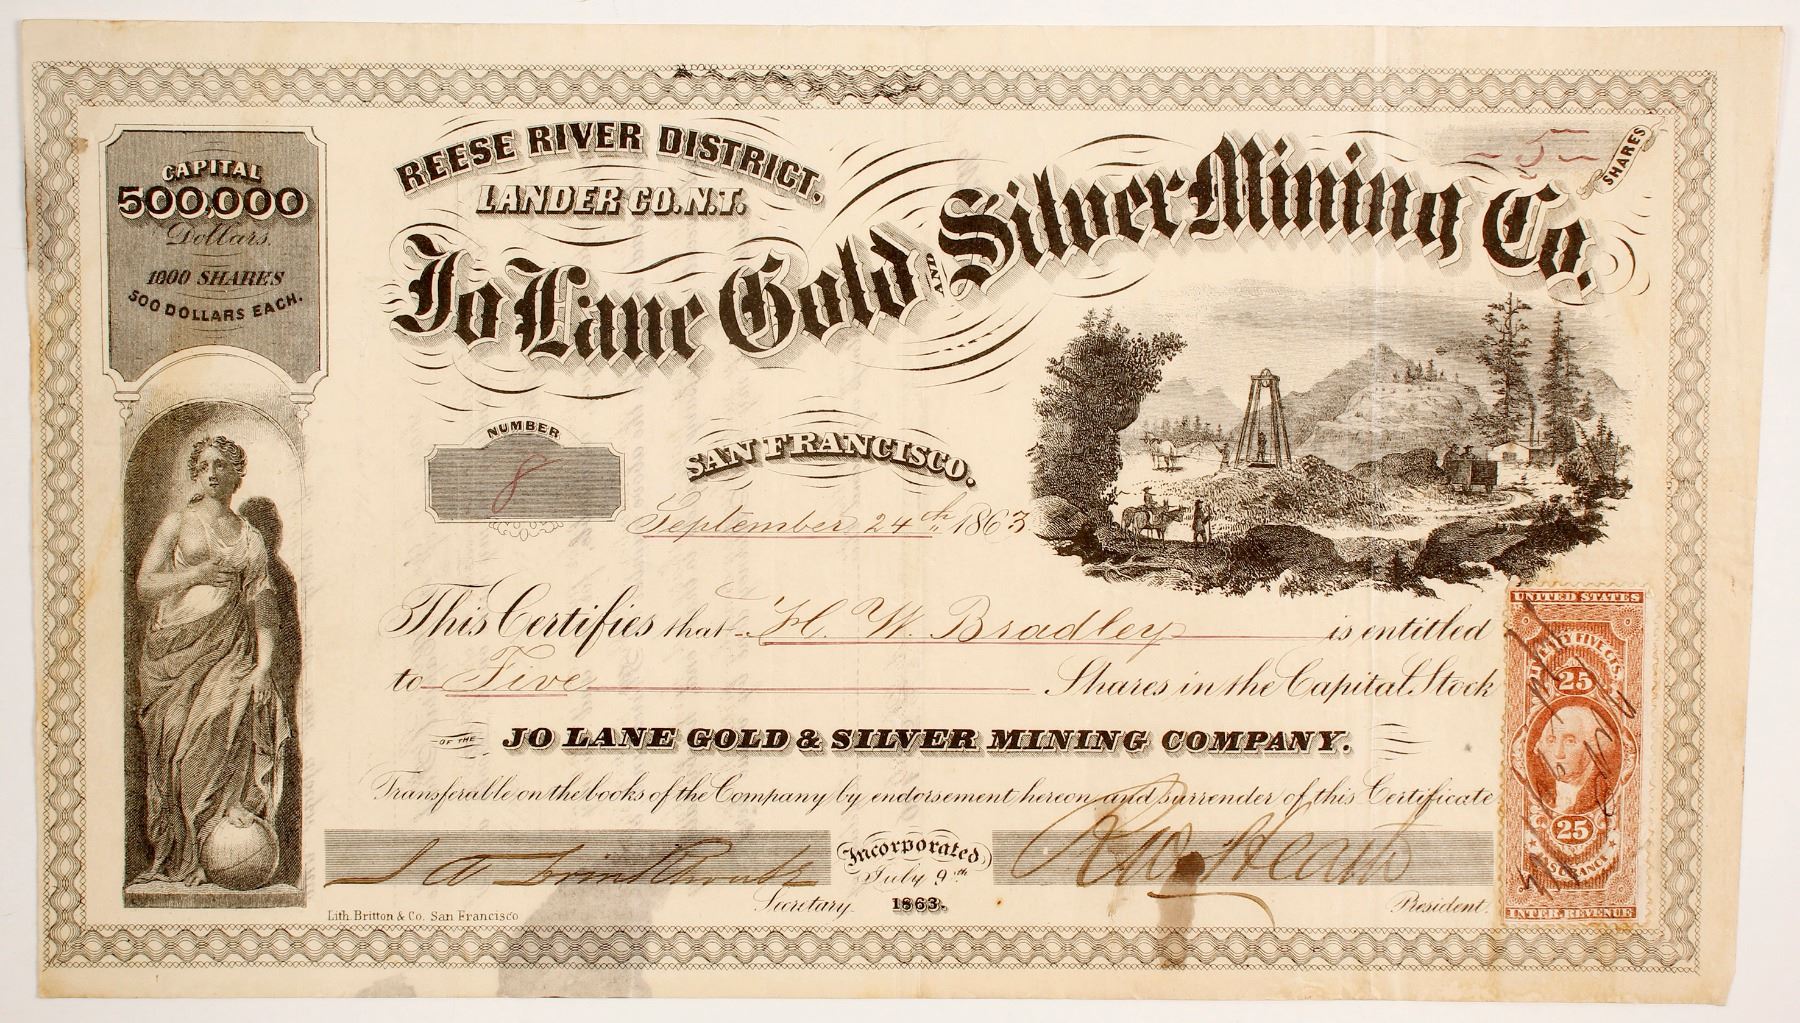 CAPITAL
500,000
Dollars.
1000 SHARES
500 DOLLARS EACH.
REESE RIVER DISTRICT,
LANDER CO. N.T.
5
SHARES
Jo Lane Gold AND Silver Mining Co.
NUMBER
8
SAN FRANCISCO.
September 24th 1863
This Certifies that H. W. Bradley is entitled
to Five Shares in the Capital Stock
OF THE JO LANE GOLD & SILVER MINING COMPANY.
Transferable on the books of the Company by endorsement hereon and surrender of this Certificate
Incorporated
July 9th
1863.
R. W. Heath
Secretary
President.
Lith. Britton & Co. San Francisco
UNITED STATES
TWENTY FIVE CTS.
25
25
INSURANCE
INTER. REVENUE